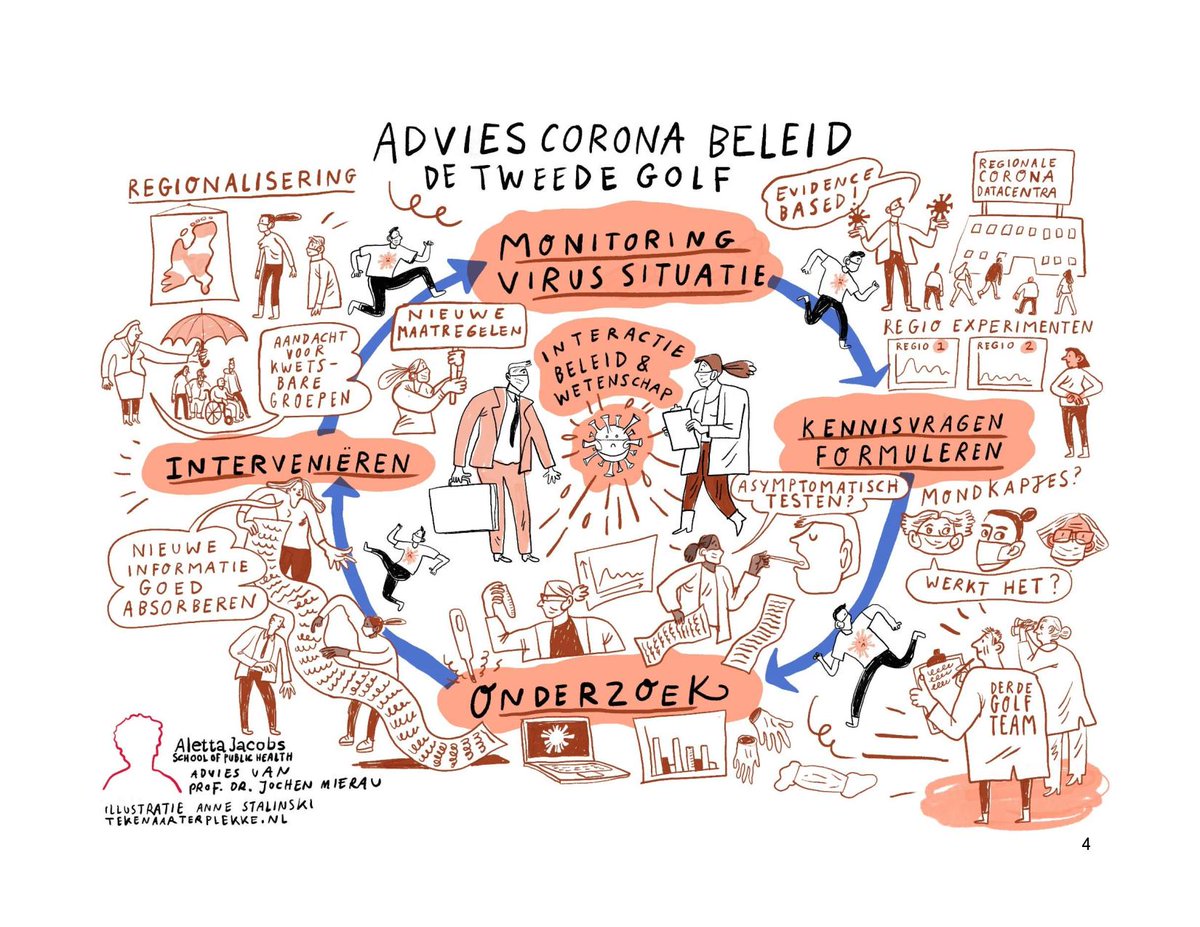 ADVIES CORONA BELEID
DE TWEEDE GOLF
REGIONALISERING
MONITORING
VIRUS SITUATIE
EVIDENCE
BASED!
REGIONALE
CORONA
DATACENTRA
NIEUWE
MAATREGELEN
AANDACHT
VOOR
KWETS-
BARE
GROEPEN
INTERACTIE
BELEID &
WETENSCHAP
REGIO EXPERIMENTEN
REGIO 1
REGIO 2
KENNISVRAGEN
FORMULEREN
INTERVENIËREN
ASYMPTOMATISCH
TESTEN?
MONDKAPJES?
WERKT HET?
NIEUWE
INFORMATIE
GOED
ABSORBEREN
ONDERZOEK
DERDE
GOLF
TEAM
Aletta Jacobs
SCHOOL OF PUBLIC HEALTH
ADVIES VAN
PROF. DR. JOCHEN MIERAU
ILLUSTRATIE ANNE STALINSKI
TEKENAARTERPLEKKE.NL
4